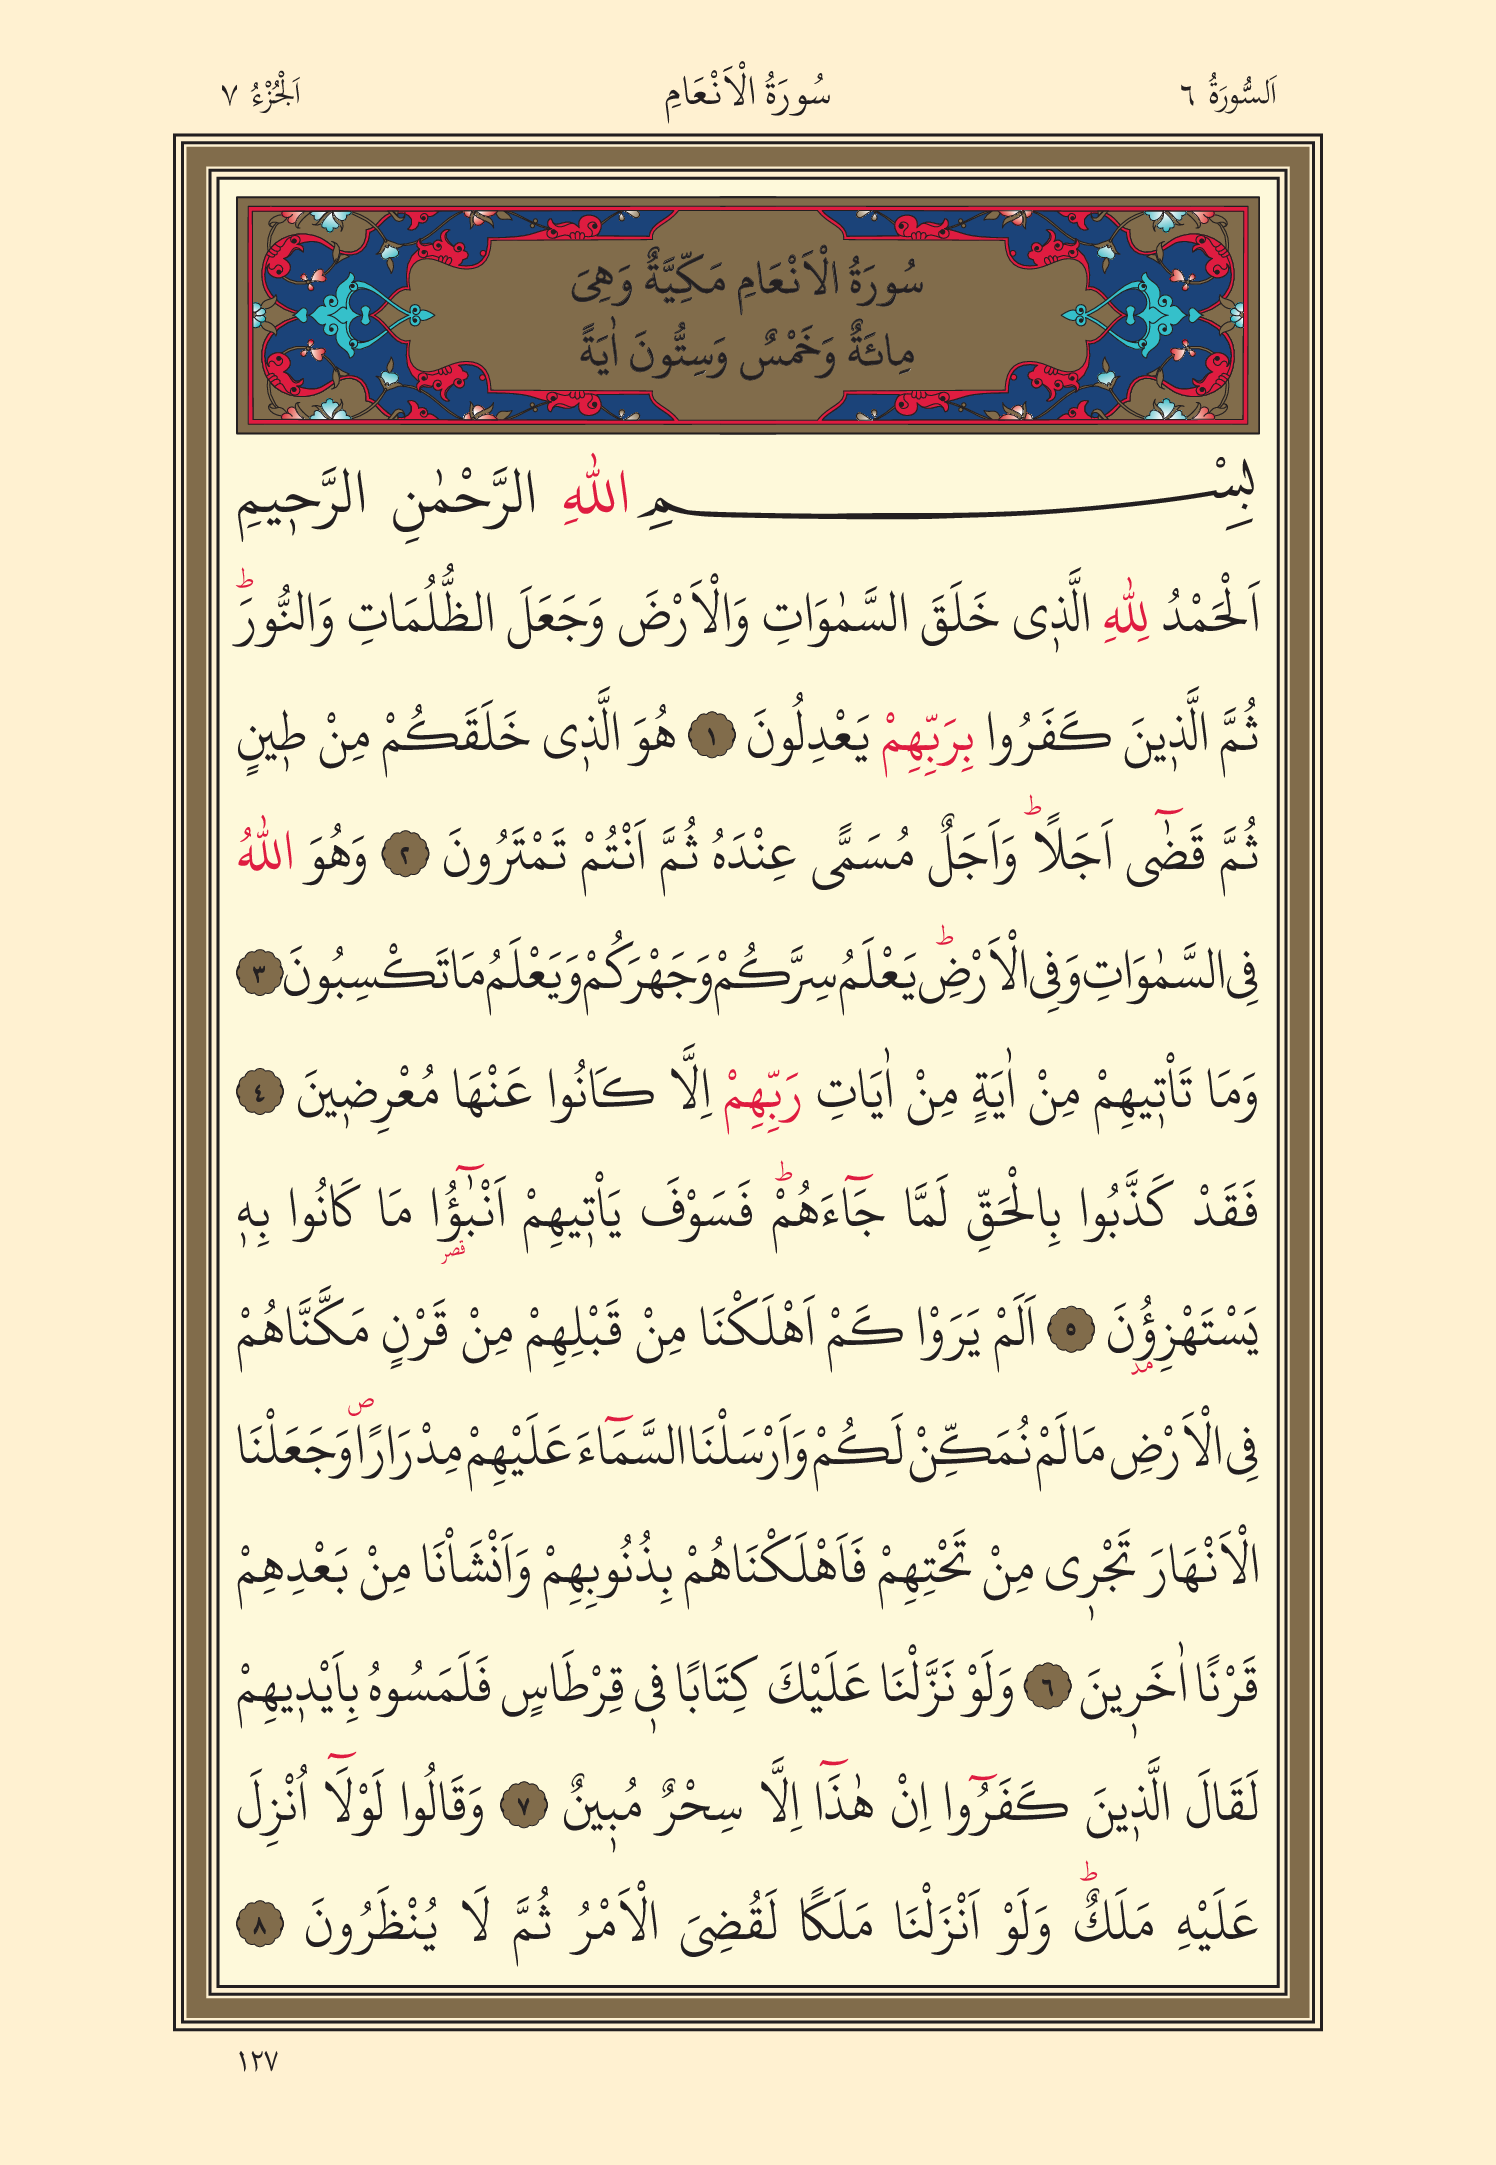 اَلسُّورَةُ ٦
سُورَةُ الْاَنْعَامِ
اَلْجُزْءُ ٧
سُورَةُ الْاَنْعَامِ مَكِّيَّةٌ وَهِىَ
مِائَةٌ وَخَمْسٌ وَسِتُّونَ اٰيَةً
بِسْــــــــــــمِ اللّٰهِ الرَّحْمٰنِ الرَّحٖيمِ
اَلْحَمْدُ لِلّٰهِ الَّذٖى خَلَقَ السَّمٰوَاتِ وَالْاَرْضَ وَجَعَلَ الظُّلُمَاتِ وَالنُّورَؕ
ثُمَّ الَّذٖينَ كَفَرُوا بِرَبِّهِمْ يَعْدِلُونَ ١ هُوَ الَّذٖى خَلَقَكُمْ مِنْ طٖينٍ
ثُمَّ قَضٰٓى اَجَلًاؕ وَاَجَلٌ مُسَمًّى عِنْدَهُ ثُمَّ اَنْتُمْ تَمْتَرُونَ ٢ وَهُوَ اللّٰهُ
فِى السَّمٰوَاتِ وَفِى الْاَرْضِؕ يَعْلَمُ سِرَّكُمْ وَجَهْرَكُمْ وَيَعْلَمُ مَا تَكْسِبُونَ ٣
وَمَا تَاْتٖيهِمْ مِنْ اٰيَةٍ مِنْ اٰيَاتِ رَبِّهِمْ اِلَّا كَانُوا عَنْهَا مُعْرِضٖينَ ٤
فَقَدْ كَذَّبُوا بِالْحَقِّ لَمَّا جَٓاءَهُمْؕ فَسَوْفَ يَاْتٖيهِمْ اَنْبٰٓؤُ۬ا مَا كَانُوا بِهٖ
قصر
يَسْتَهْزِؤُ۫نَ ٥ اَلَمْ يَرَوْا كَمْ اَهْلَكْنَا مِنْ قَبْلِهِمْ مِنْ قَرْنٍ مَكَّنَّاهُمْ
مد
فِى الْاَرْضِ مَا لَمْ نُمَكِّنْ لَكُمْ وَاَرْسَلْنَا السَّمَٓاءَ عَلَيْهِمْ مِدْرَارًاࣕ وَجَعَلْنَا
الْاَنْهَارَ تَجْرٖى مِنْ تَحْتِهِمْ فَاَهْلَكْنَاهُمْ بِذُنُوبِهِمْ وَاَنْشَاْنَا مِنْ بَعْدِهِمْ
قَرْنًا اٰخَرٖينَ ٦ وَلَوْ نَزَّلْنَا عَلَيْكَ كِتَابًا فٖى قِرْطَاسٍ فَلَمَسُوهُ بِاَيْدٖيهِمْ
لَقَالَ الَّذٖينَ كَفَرُٓوا اِنْ هٰذَٓا اِلَّا سِحْرٌ مُبٖينٌ ٧ وَقَالُوا لَوْلَٓا اُنْزِلَ
عَلَيْهِ مَلَكٌؕ وَلَوْ اَنْزَلْنَا مَلَكًا لَقُضِىَ الْاَمْرُ ثُمَّ لَا يُنْظَرُونَ ٨
١٢٧